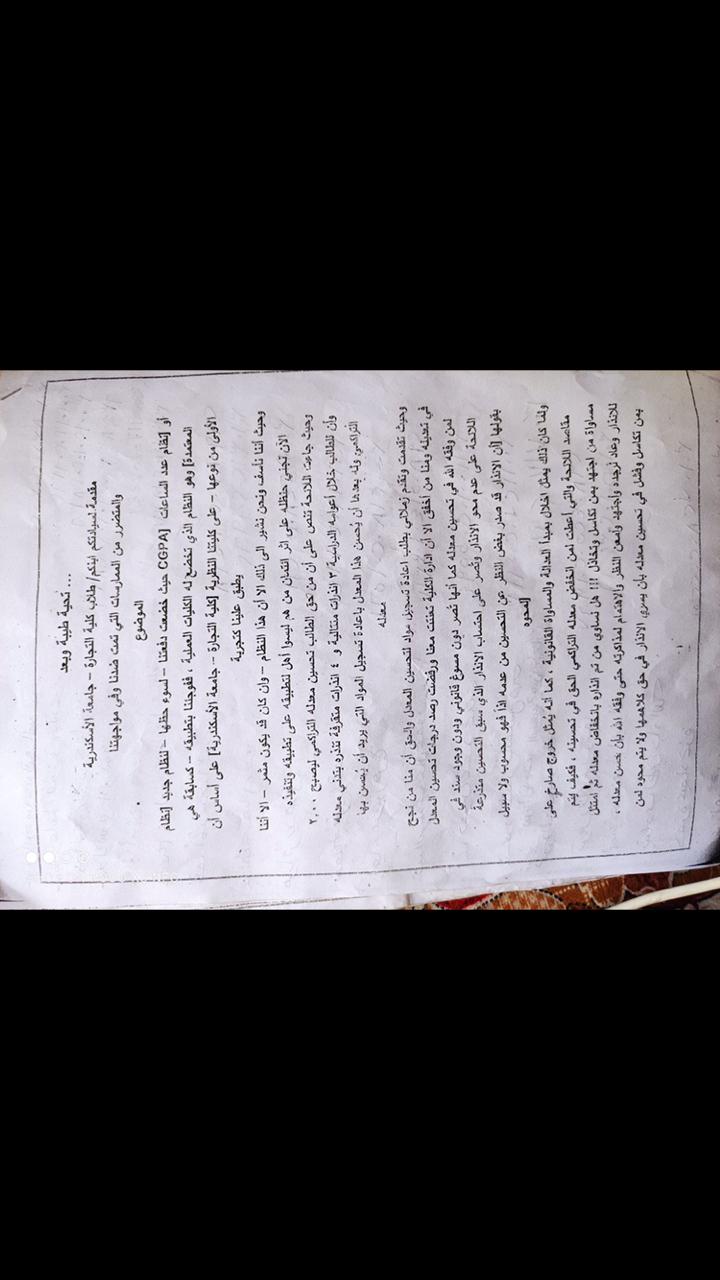 تحية طيبة وبعد ...
مقدمة لسيادتكم ابنكم/ طلاب كلية التجارة – جامعة الأسكندرية
والمتضرر من الممارسات التي تمت ضدنا وفي مواجهتنا
الموضوع
أو [نظام عدد الساعات CGPA] حيث خضعت دفعتنا – لسوء حظها – لنظام جديد [نظام
المعتمدة] وهو النظام الذي تخضع له الكليات العملية ، ففوجئنا بتطبيقه – كسابقة هي
الأولى من نوعها – على كليتنا النظرية [كلية التجارة – جامعة الأسكندرية] على أساس أن
يطبق علينا كتجربة
وحيث أننا نأسف ونحن نشير الى ذلك الا أن هذا النظام – وان كان قد يكون مثمر – الا أننا
الآن نجني حنظله على اثر ائتمان من هم ليسوا أهل لتطبيقه على تطبيقه وتنفيذه
وحيث جاءت اللائحة تنص على أن من حق الطالب تحسين معدله التراكمي ليصبح ٢.٠٠
وأن للطالب خلال أعوامه الدراسية ٣ انذارات متتالية و ٤ انذارات متفرقة تنذره بتدني معدله
التراكمي وله بعدها أن يُحسن هذا المعدل باعادة تسجيل المواد التي يريد أن يُحسن بها
معدله
وحيث تقدمت وتقدم زملائي بطلب اعادة تسجيل مواد لتحسين المعدل والحق أن منا من نجح
في تعديله ومنا من أخفق الا أن ادارة الكلية تعنتت معنا ورفضت رصد درجات تحسين المعدل
لمن وفقه الله في تحسين معدله كما أنها تُصر دون مسوغ قانوني ودون وجود سند في
اللائحة على عدم محو الانذار وتُصر على احتساب الانذار الذي سبق التحسين متذرعة
بقولها [أن الانذار قد صدر بغض النظر عن التحسين من عدمه اذاً فهو محسوب ولا سبيل
لمحوه]
ولما كان ذلك يمثل اخلال بمبدأ العدالة والمساواة القانونية ، كما أنه يُمثل خروج صارخ على
مقاصد اللائحة والتي أعطت لمن انخفض معدله التراكمي الحق في تحسينه ، فكيف يتم
مساواة من اجتهد بمن تكاسل وتخاذل !!! هل نساوي من تم انذاره بانخفاض معدله ثم امتثل
للانذار وعاد لرشده واجتهد وأمعن النظر والاهتمام لمذاكرته حتى وفقه الله بأن حسن معدله ،
بمن تكاسل وفشل في تحسين معدله بأن يسري الانذار في حق كلاهما ولا يتم محوه لمن